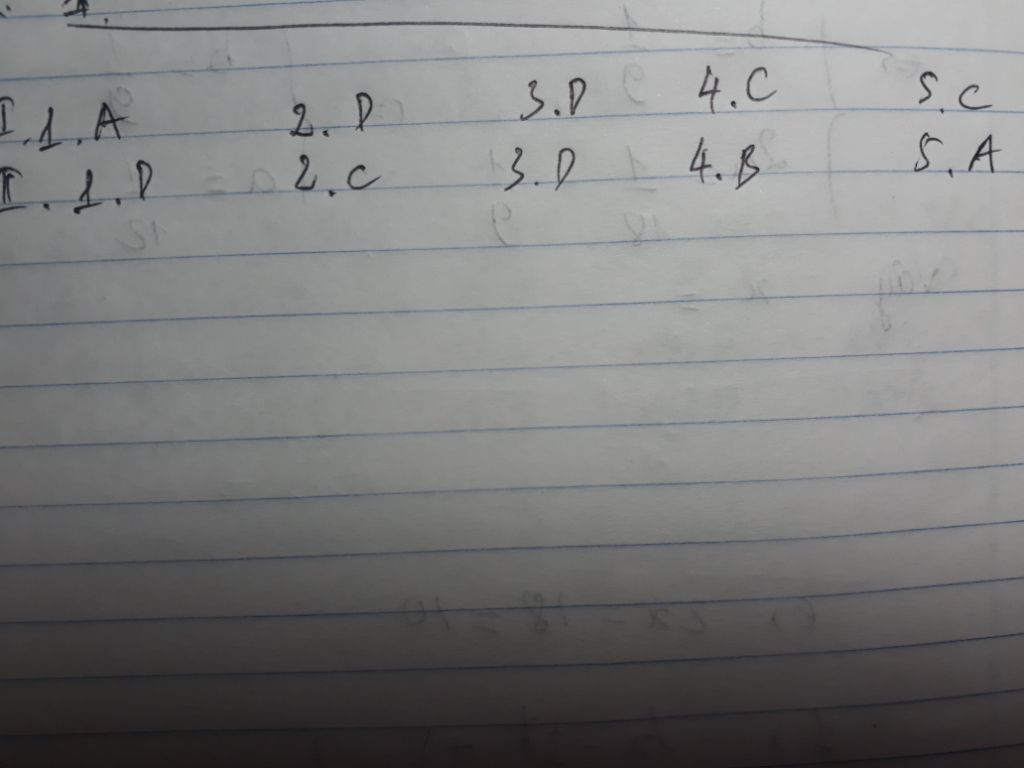 I. 1. A 2. D 3. D 4. C 5. C
II. 1. D 2. C 3. D 4. B 5. A